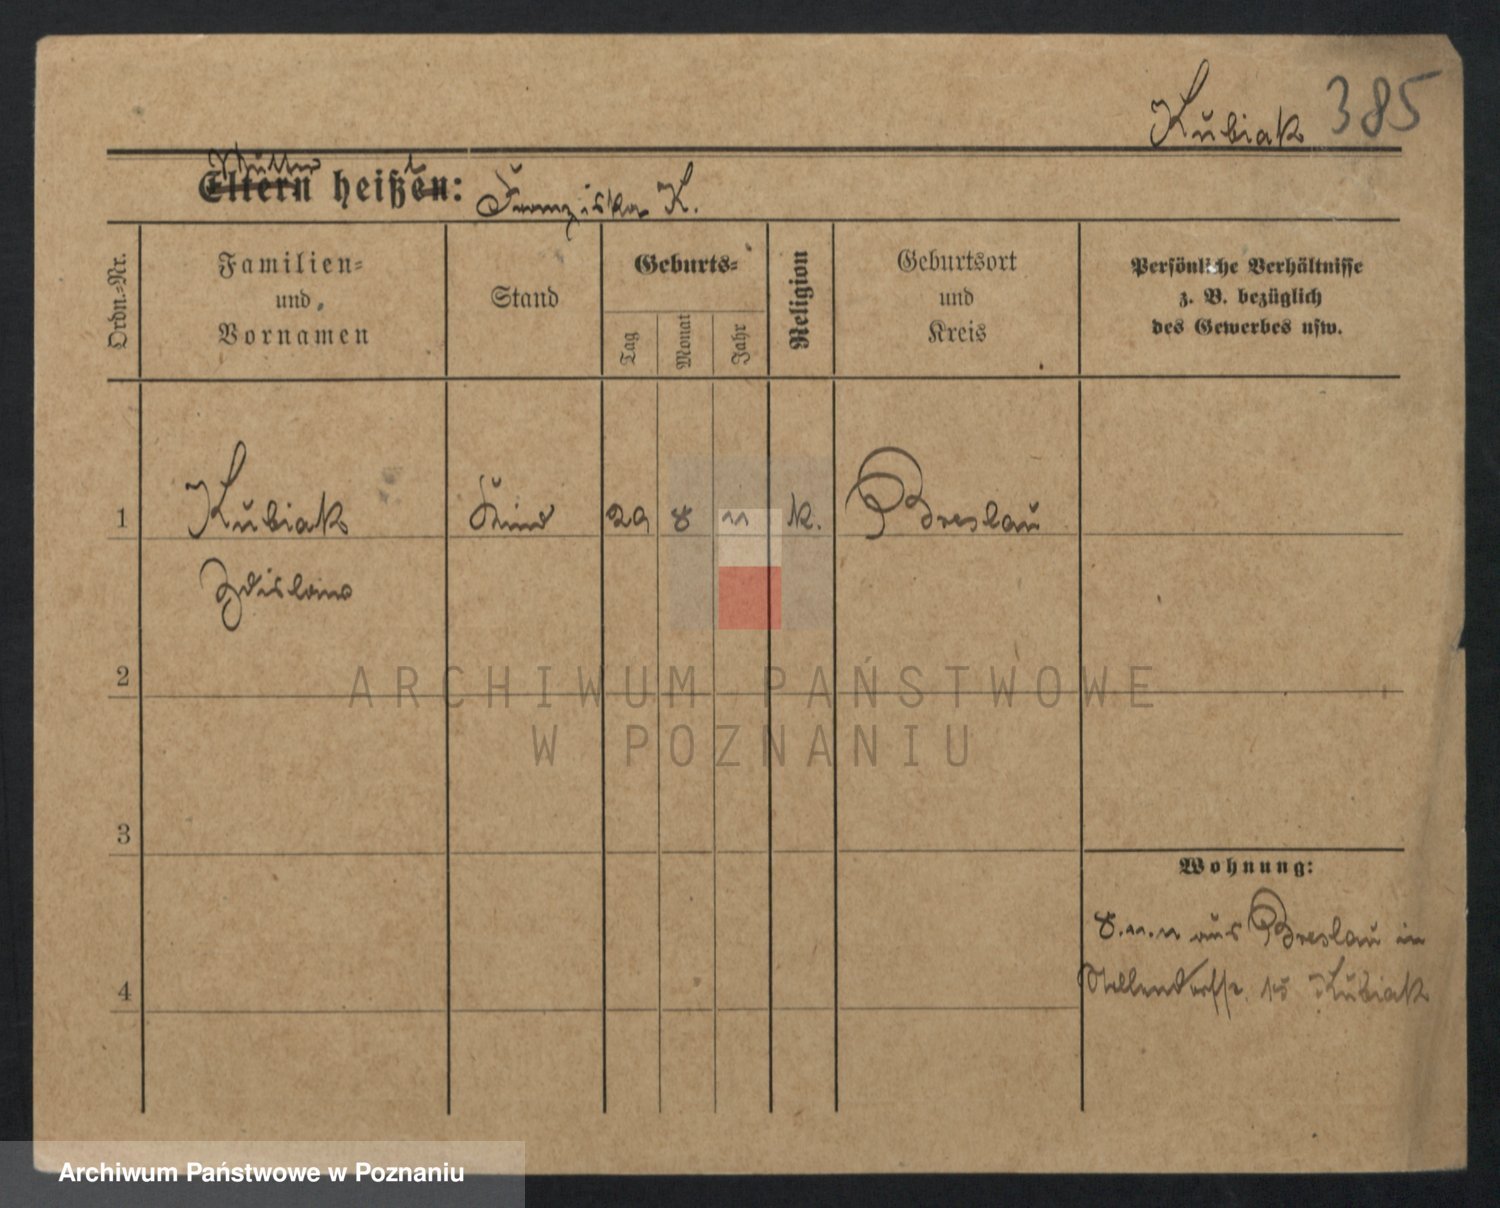 Kubiak 385
Mutter
Eltern heißt en: Franziska K.
Ordn.-Nr.
Familien-
und
Vornamen
Stand
Geburts-
Tag
Monat
Jahr
Religion
Geburtsort
und
Kreis
Persönliche Verhältnisse
z. B. bezüglich
des Gewerbes usw.
1 Kubiak Kind 29 8 11 k. Breslau
Zdislaus
2
ARCHIWUM PAŃSTWOWE
W POZNANIU
3
Wohnung:
8.11.11 aus Breslau in
4
Kubiak
Archiwum Państwowe w Poznaniu